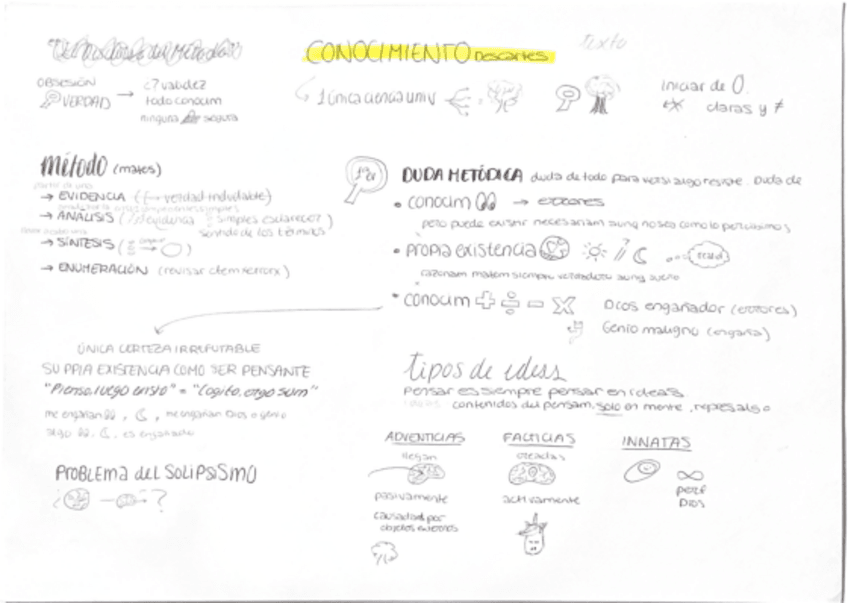 "Del discurso del Método"
CONOCIMIENTO Descartes
texto
OBSESIÓN
VERDAD → c? validez
todo conocim
ninguna segura
1 única ciencia univ
iniciar de 0.
claras y ≠
método (mates)
→ EVIDENCIA (verdad indudable)
→ ANÁLISIS (evidencia simples esclarecer
sentido de los términos
→ SÍNTESIS
→ ENUMERACIÓN (revisar x tem x error x)
DUDA METÓDICA duda de todo para ver si algo resiste. Duda de
• conocim → errores
pero puede existir necesariam aunq no sea como lo percibimos
• propia existencia
razonam matem siempre verdadero aunq sueño
• conocim + ÷ − ×
Dios engañador (errores)
Genio maligno (engaña)
ÚNICA CERTEZA IRREFUTABLE
SU PPIA EXISTENCIA COMO SER PENSANTE
"Pienso, luego existo" = "Cogito, ergo sum"
me engañan , me engañan Dios o genio
algo es engañado
PROBLEMA del SOLIPSISMO
¿ → ?
tipos de ideas
Pensar es siempre pensar en ideas
contenidos del pensam, solo en mente, repres also
ADVENTICIAS
llegan
pasivamente
causadas por
objetos externos
FACTICIAS
creadas
activamente
INNATAS
∞
perf
Dios